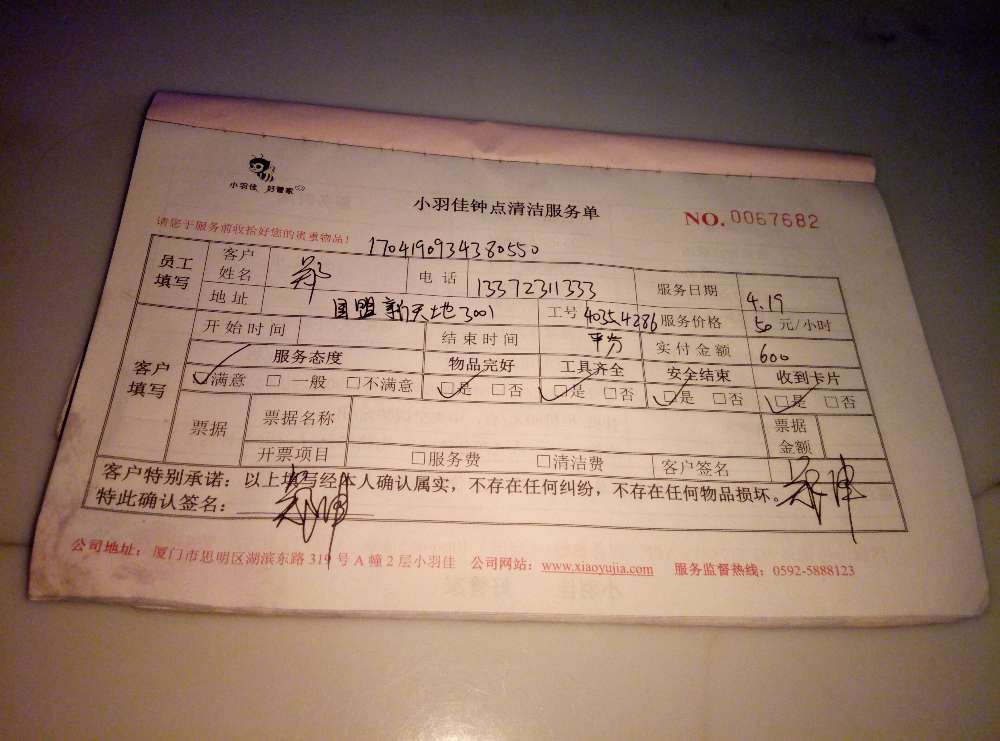 小羽佳 好管家
小羽佳钟点清洁服务单
NO. 0067682
请您于服务前收拾好您的贵重物品！
1704190934380550
员工填写 客户姓名 郑 电话 13372311333 服务日期 4.19
地址 国盟新天地3001 工号 40354286 服务价格 50 元/小时
客户填写 开始时间 结束时间 平方 实付金额 600
服务态度 物品完好 工具齐全 安全结束 收到卡片
☑满意 □一般 □不满意 ☑是 □否 ☑是 □否 ☑是 □否 ☑是 □否
票据 票据名称 票据金额
开票项目 □服务费 □清洁费 客户签名
客户特别承诺：以上填写经本人确认属实，不存在任何纠纷，不存在任何物品损坏。
特此确认签名：
公司地址：厦门市思明区湖滨东路 319 号 A 幢 2 层小羽佳 公司网站：www.xiaoyujia.com 服务监督热线：0592-5888123